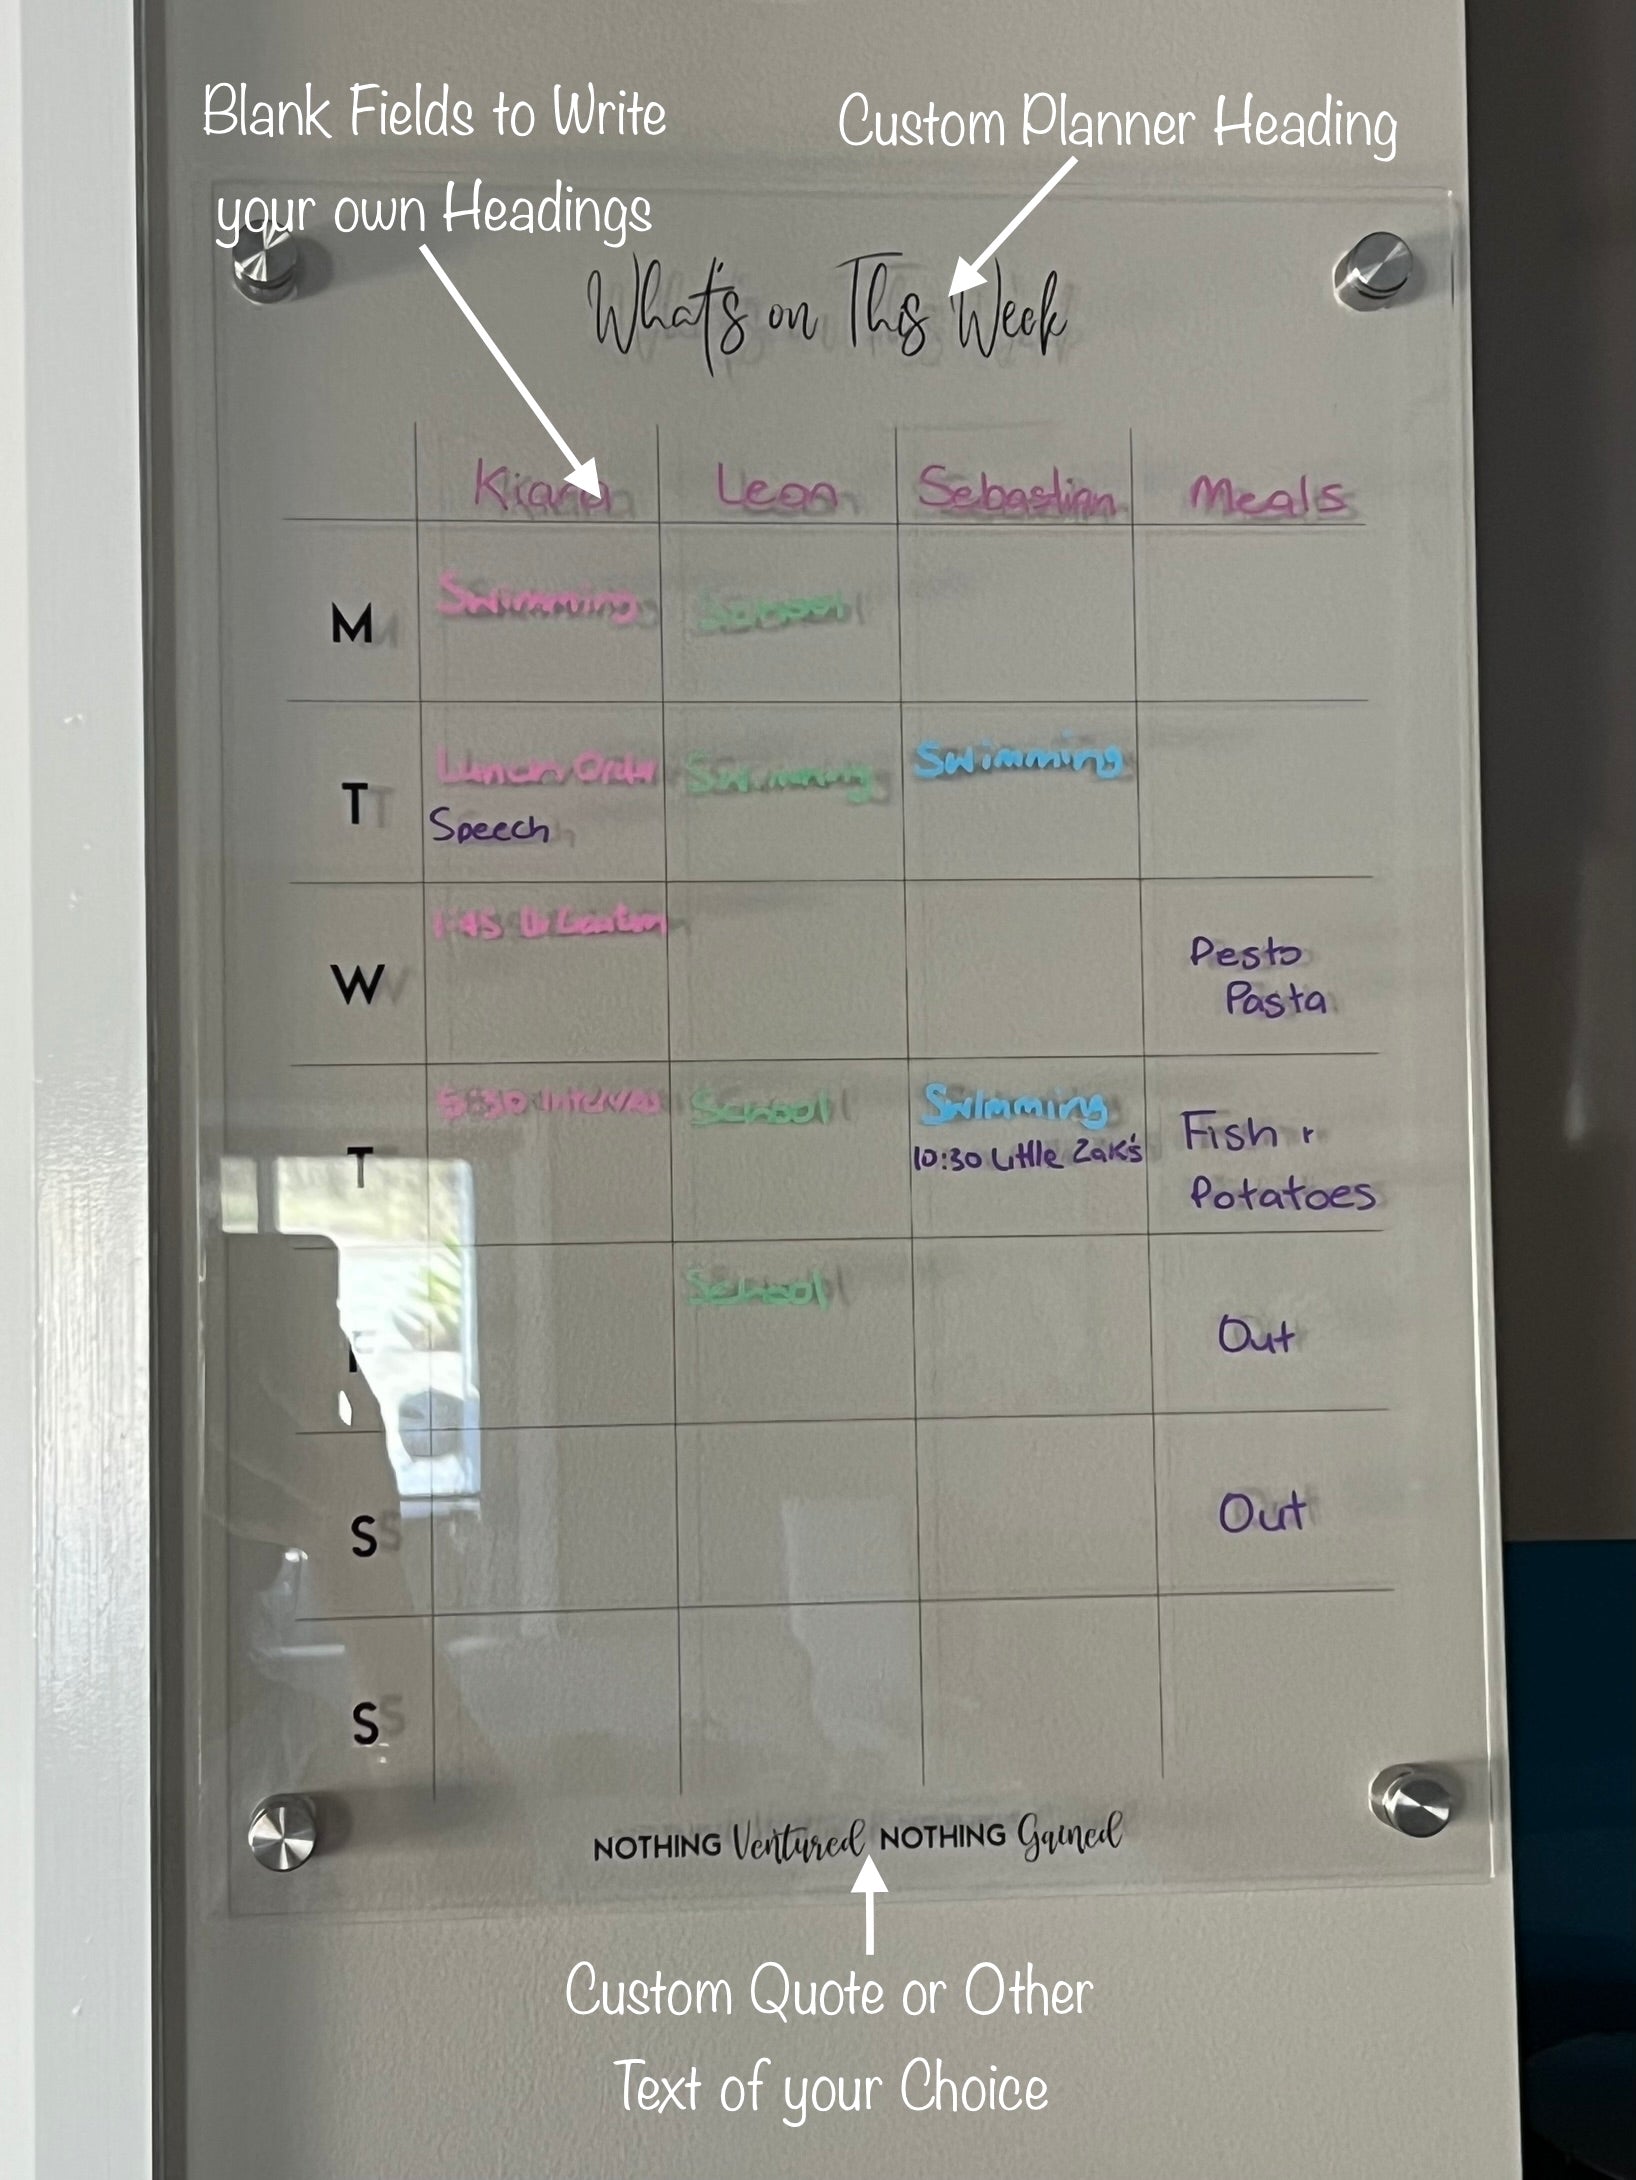 Blank Fields to Write
your own Headings
Custom Planner Heading
What's on This Week
Kiara Leon Sebastian Meals
M Swimming School
T Lunch Order Swimming Swimming
Speech
W 1:45 Dr
Pesto
Pasta
T 5:30 School Swimming Fish +
10:30 Little Zak's
Potatoes
F School Out
S Out
S
NOTHING Ventured NOTHING Gained
Custom Quote or Other
Text of your Choice